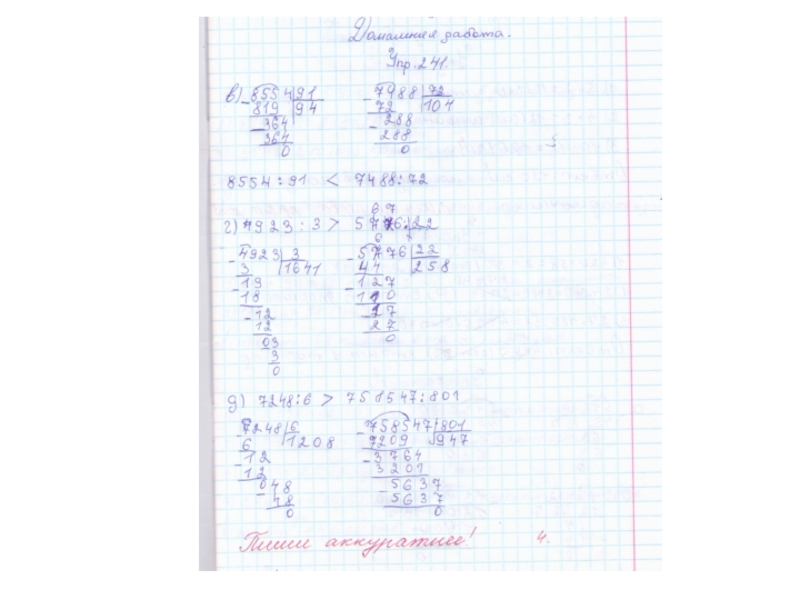 Домашняя работа.
Упр. 241.
в) 8554 91 7488 72
819 94 72 104
364 288
364 288
0 0
8554 : 91 < 7488 : 72
г) 4923 : 3 > : 22
4923 3 5776 22
3 1641 44 258
19 127
18 110
12
12 27
03 0
3
0
д) 7248 : 6 > 758547 : 801
7248 6 758547 801
6 1208 7209 947
12 3764
12 3201
048 5637
48 5637
0 0
Пиши аккуратнее! 4.